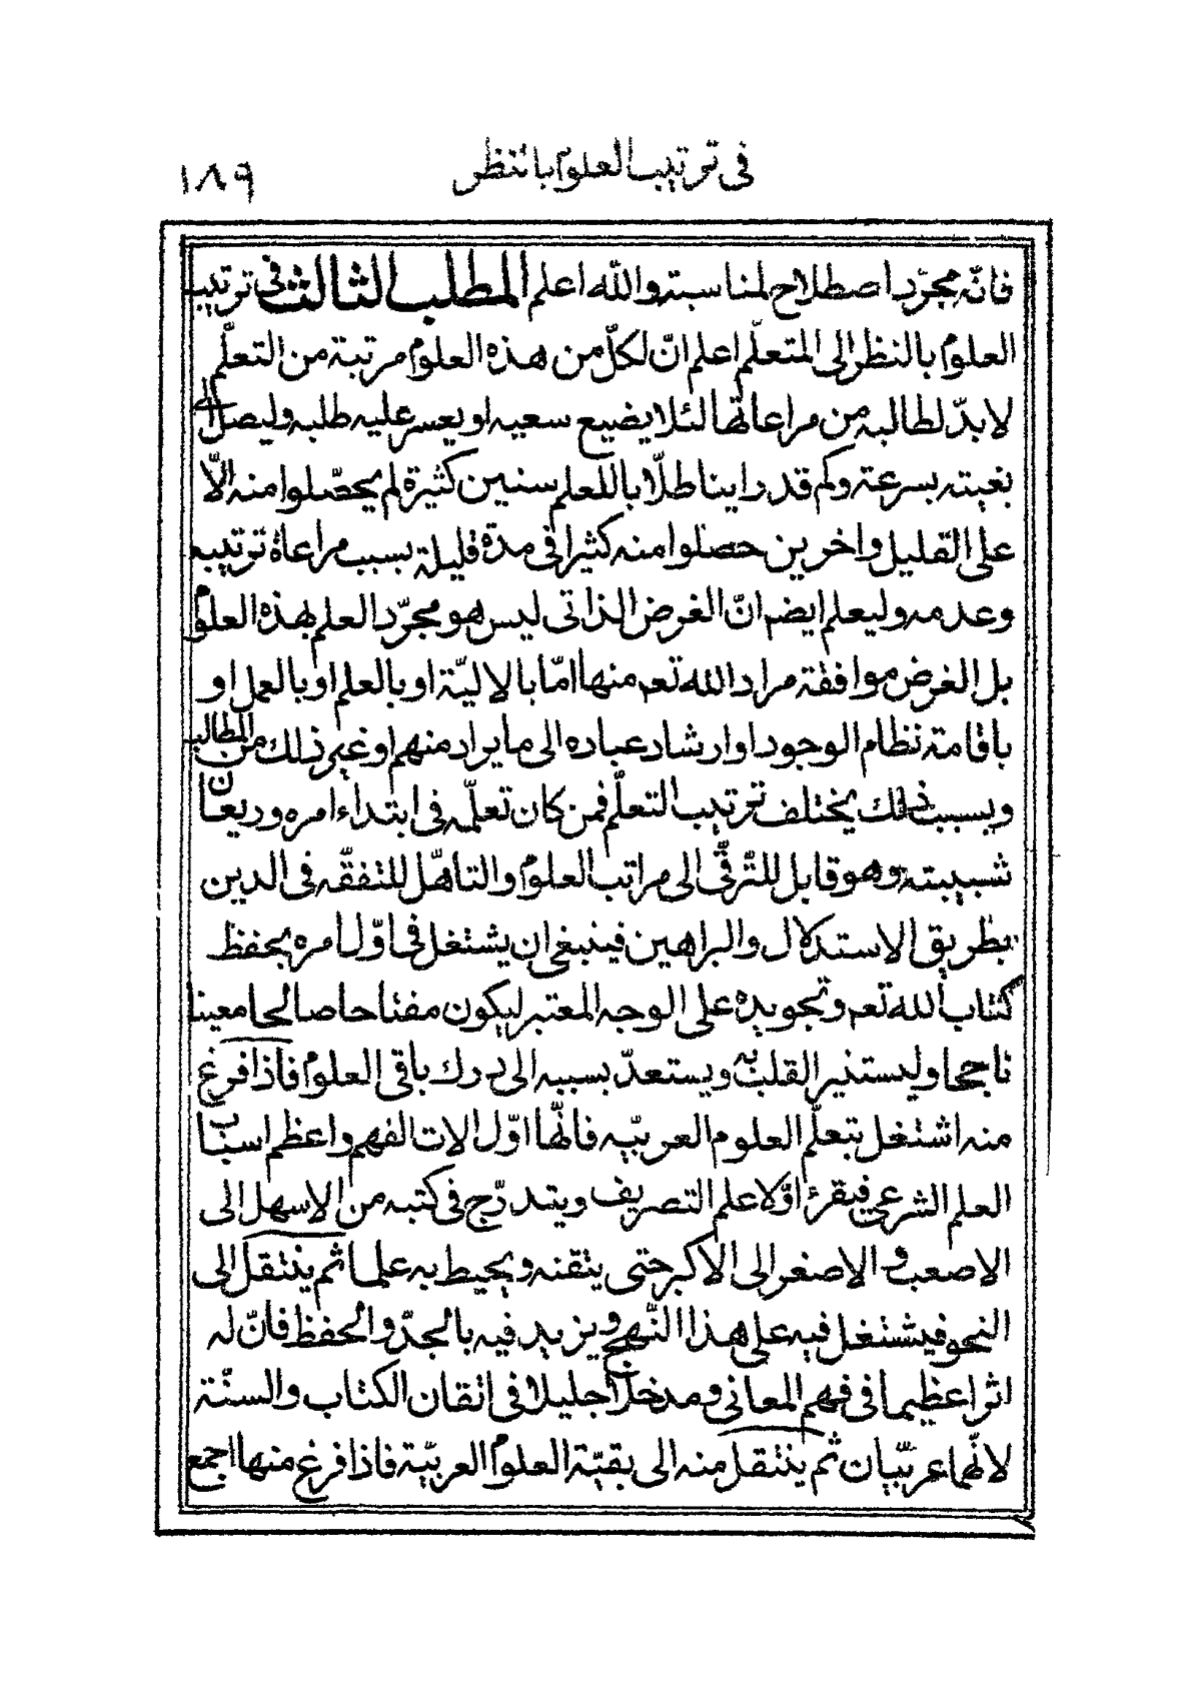 في ترتيب العلوم بالنظر
١٨٩
فانّه مجرّد اصطلاح لمناسبة والله اعلم المطلب الثالث في ترتيب
العلوم بالنظر الى المتعلّم اعلم انّ لكلّ من هذه العلوم مرتبة من التعلّم
لا بدّ لطالبه من مراعاتها لئلا يضيع سعيه او يعسر عليه طلبه وليصل الى
بغيته بسرعة وكم قد راينا طلّابا للعلم سنين كثيرة لم يحصّلوا منه الّا
على القليل واخرين حصلوا منه كثيرا في مدة قليلة بسبب مراعاة ترتيبه
وعدمه وليعلم ايضم انّ الغرض الذاتى ليس هو مجرّد العلم بهذه العلوم
بل الغرض موافقة مراد الله تعم منها امّا بالاليّة او بالعلم او بالعمل او
باقامة نظام الوجود او ارشاد عباده الى ما يراد منهم او غير ذلك من المطالب
وبسبب ذلك يختلف ترتيب التعلّم فمن كان تعلّمه في ابتداء امره وريعان
شبيبته وهو قابل للترقّى الى مراتب العلوم والتاهّل للتفقّه في الدين
بطريق الاستدلال والبراهين فينبغي ان يشتغل في اوّل امره بحفظ
كتاب الله تعم وتجويده على الوجه المعتبر ليكون مفتاحا صالحا معينا
ناجحا وليستنير القلب به ويستعدّ بسببه الى درك باقي العلوم فاذا فرغ
منه اشتغل بتعلّم العلوم العربيّه فانّها اوّل الات الفهم واعظم اسباب
العلم الشرعي فيقرئ اوّلا علم التصريف ويتدرّج في كتبه من الاسهل الى
الاصعب و الاصغر الى الاكبر حتى يتقنه ويحيط به علما ثم ينتقل الى
النحو فيشتغل فيه على هذا النّهج ويزيد فيه بالجدّ والحفظ فانّ له
اثرا عظيما في فهم المعاني ومدخلا جليلا في اتقان الكتاب والسنّة
لانّهما عربيّان ثم ينتقل منه الى بقيّة العلوم العربيّة فاذا فرغ منها اجمع